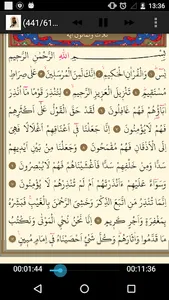 13:36
(441/61...
بِسْمِ اللهِ الرَّحْمٰنِ الرَّحِيمِ
يٰسٓ ۝ وَالْقُرْاٰنِ الْحَكِيمِ ۝ اِنَّكَ لَمِنَ الْمُرْسَلِينَ ۝ عَلٰى صِرَاطٍ
مُسْتَقِيمٍ ۝ تَنْزِيلَ الْعَزِيزِ الرَّحِيمِ ۝ لِتُنْذِرَ قَوْمًا مَا اُنْذِرَ
اٰبَاؤُهُمْ فَهُمْ غَافِلُونَ ۝ لَقَدْ حَقَّ الْقَوْلُ عَلٰى اَكْثَرِهِمْ
فَهُمْ لَا يُؤْمِنُونَ ۝ اِنَّا جَعَلْنَا فِي اَعْنَاقِهِمْ اَغْلَالًا فَهِيَ اِلَى
الْاَذْقَانِ فَهُمْ مُقْمَحُونَ ۝ وَجَعَلْنَا مِنْ بَيْنِ اَيْدِيهِمْ
سَدًّا وَمِنْ خَلْفِهِمْ سَدًّا فَاَغْشَيْنَاهُمْ فَهُمْ لَا يُبْصِرُونَ
۝ وَسَوَاءٌ عَلَيْهِمْ ءَاَنْذَرْتَهُمْ اَمْ لَمْ تُنْذِرْهُمْ لَا يُؤْمِنُونَ ۝
اِنَّمَا تُنْذِرُ مَنِ اتَّبَعَ الذِّكْرَ وَخَشِيَ الرَّحْمٰنَ بِالْغَيْبِ فَبَشِّرْهُ
بِمَغْفِرَةٍ وَاَجْرٍ كَرِيمٍ ۝ اِنَّا نَحْنُ نُحْيِ الْمَوْتٰى وَنَكْتُبُ
مَا قَدَّمُوا وَاٰثَارَهُمْ وَكُلَّ شَيْءٍ اَحْصَيْنَاهُ فِي اِمَامٍ مُبِينٍ ۝
00:01:44
00:11:36